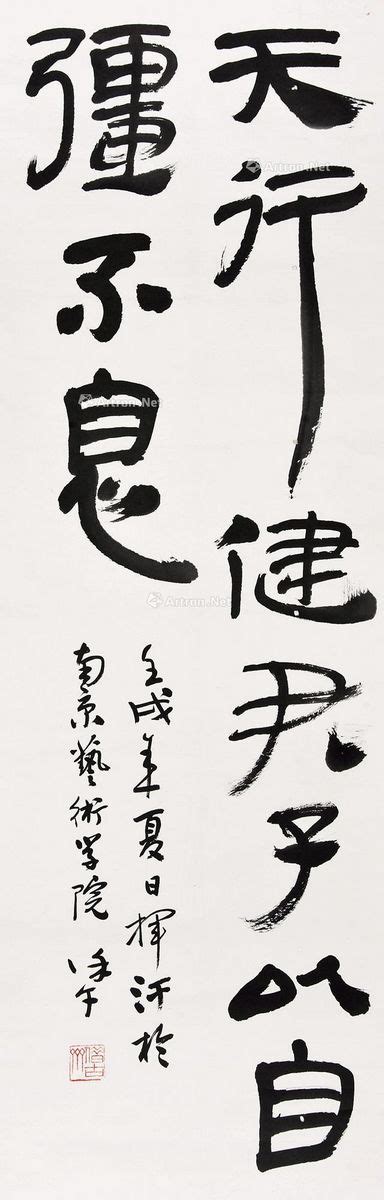 天行健君子以自
彊不息
壬戌年夏日揮汗於
南京藝術学院
Artron.Net
Artron.Net
Artron.Net